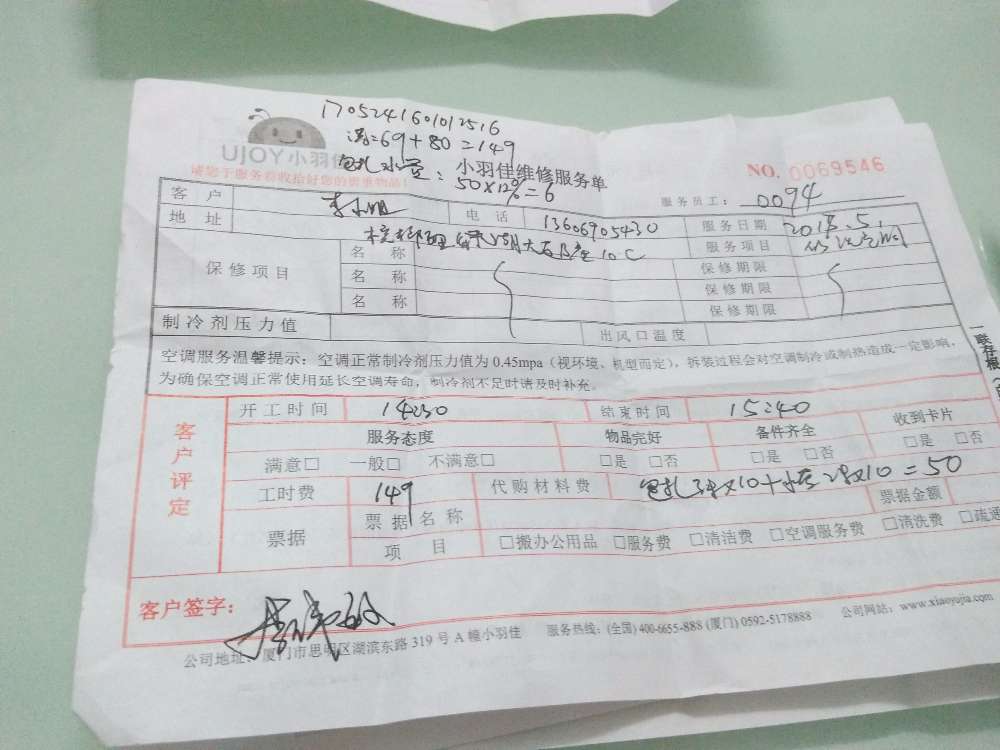 170524160102516
69+80=149
UJOY小羽佳
包扎水管: 小羽佳维修服务单
50×12%=6
请您于服务前收拾好您的贵重物品!
NO.0069546
服务员工: 0094
客户 李小姐 电话 13606905430 服务日期 2018.5.1
地址 10C 服务项目
保修项目 名称 保修期限
名称 保修期限
名称 保修期限
制冷剂压力值 出风口温度
空调服务温馨提示: 空调正常制冷剂压力值为0.45mpa(视环境、机型而定),拆装过程会对空调制冷或制热造成一定影响,
为确保空调正常使用延长空调寿命,制冷剂不足时请及时补充。
一联存根
客户评定
开工时间 14:30 结束时间 15:40
服务态度 物品完好 备件齐全 收到卡片
满意□ 一般□ 不满意□ □是 □否 □是 □否 □是 □否
工时费 149 代购材料费 包扎3米×10+水管2米×10=50
票据 票据名称 票据金额
项目 □搬办公用品 □服务费 □清洁费 □空调服务费 □清洗费 □疏通
客户签字:
公司地址: 厦门市思明区湖滨东路319号A幢小羽佳 服务热线: (全国) 400-6655-888 (厦门) 0592-5178888 公司网站: www.xiaoyujia.com